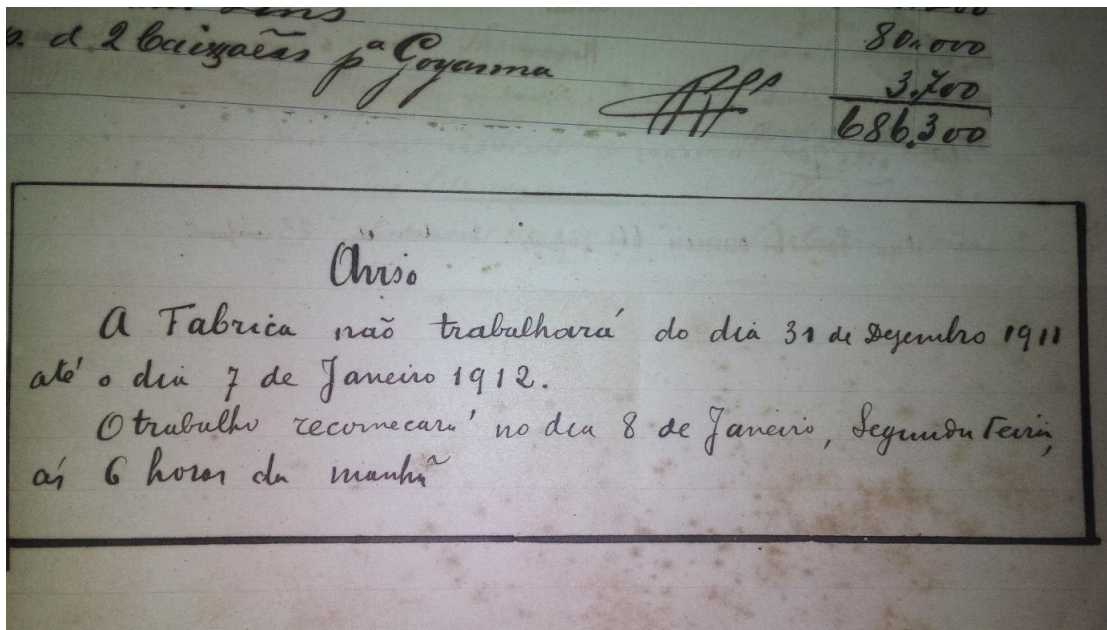 80.000
d 2 Caixões pª Goyanna
3.700
686.300
Aviso
A Fabrica não trabalhará do dia 31 de Dezembro 1911
até o dia 7 de Janeiro 1912.
O trabalho recomecará no dia 8 de Janeiro, Segunda Feira,
ás 6 horas da manhã